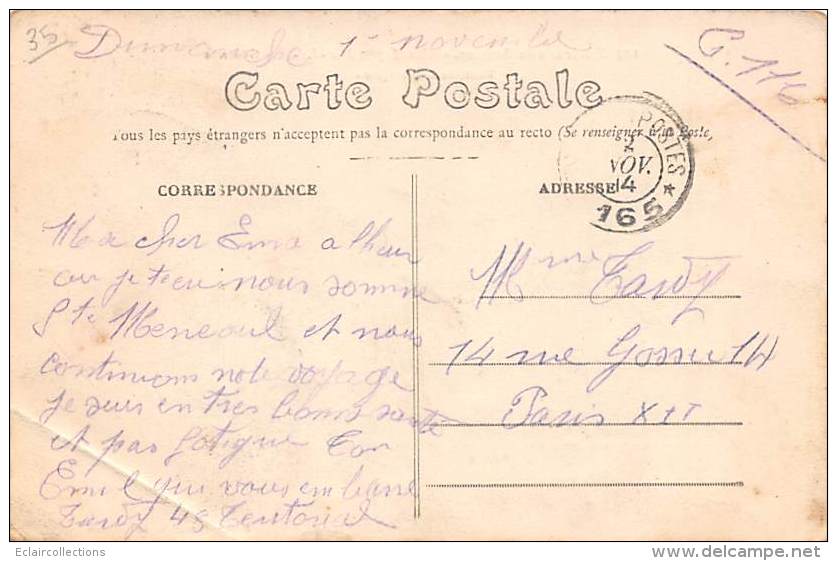 35
Dimanche 1er novembre
G. 116
Carte Postale
Tous les pays étrangers n'acceptent pas la correspondance au recto (Se renseigner à la Poste,
POSTES
2
NOV.
14
165 *
CORRESPONDANCE
ADRESSE
Ma cher Ema a lheur
ou je tecri nous somme
Ste Meneoul et nous
continuons note voyage
je suis en tres bonne santé
et pas fatigue Ton
Emil qui vous embrasse
Tardy 45 Teritorial
Mme Tardy
14 rue
Paris XII
Eclaircollections
delcampe.net